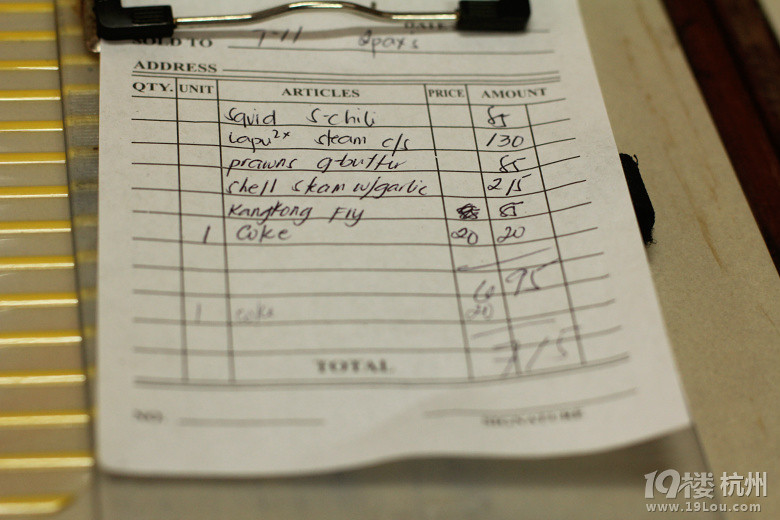 DATE
SOLD TO 7-11 2paxs
ADDRESS
QTY. UNIT ARTICLES PRICE AMOUNT
squid s-chili 85
lapu2x steam c/s 130
prawns g-butter 85
shell steam w/garlic 215
Kangkong Fry 85
1 Coke 20 20
695
1 coke 20
715
TOTAL
19楼 杭州
www.19Lou.com